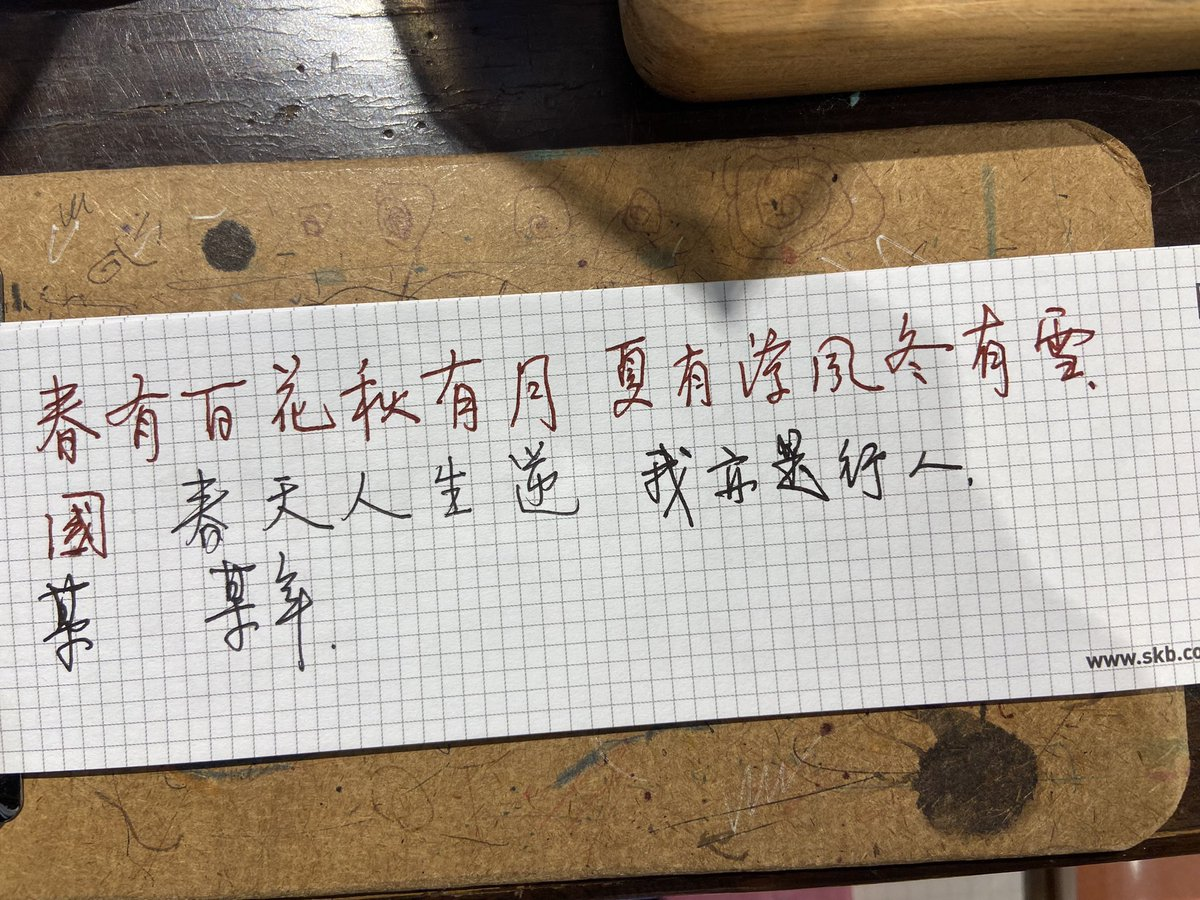 春有百花秋有月 夏有涼風冬有雲
國 春天人生逆 我亦是行人.
某 某年.
www.skb.co